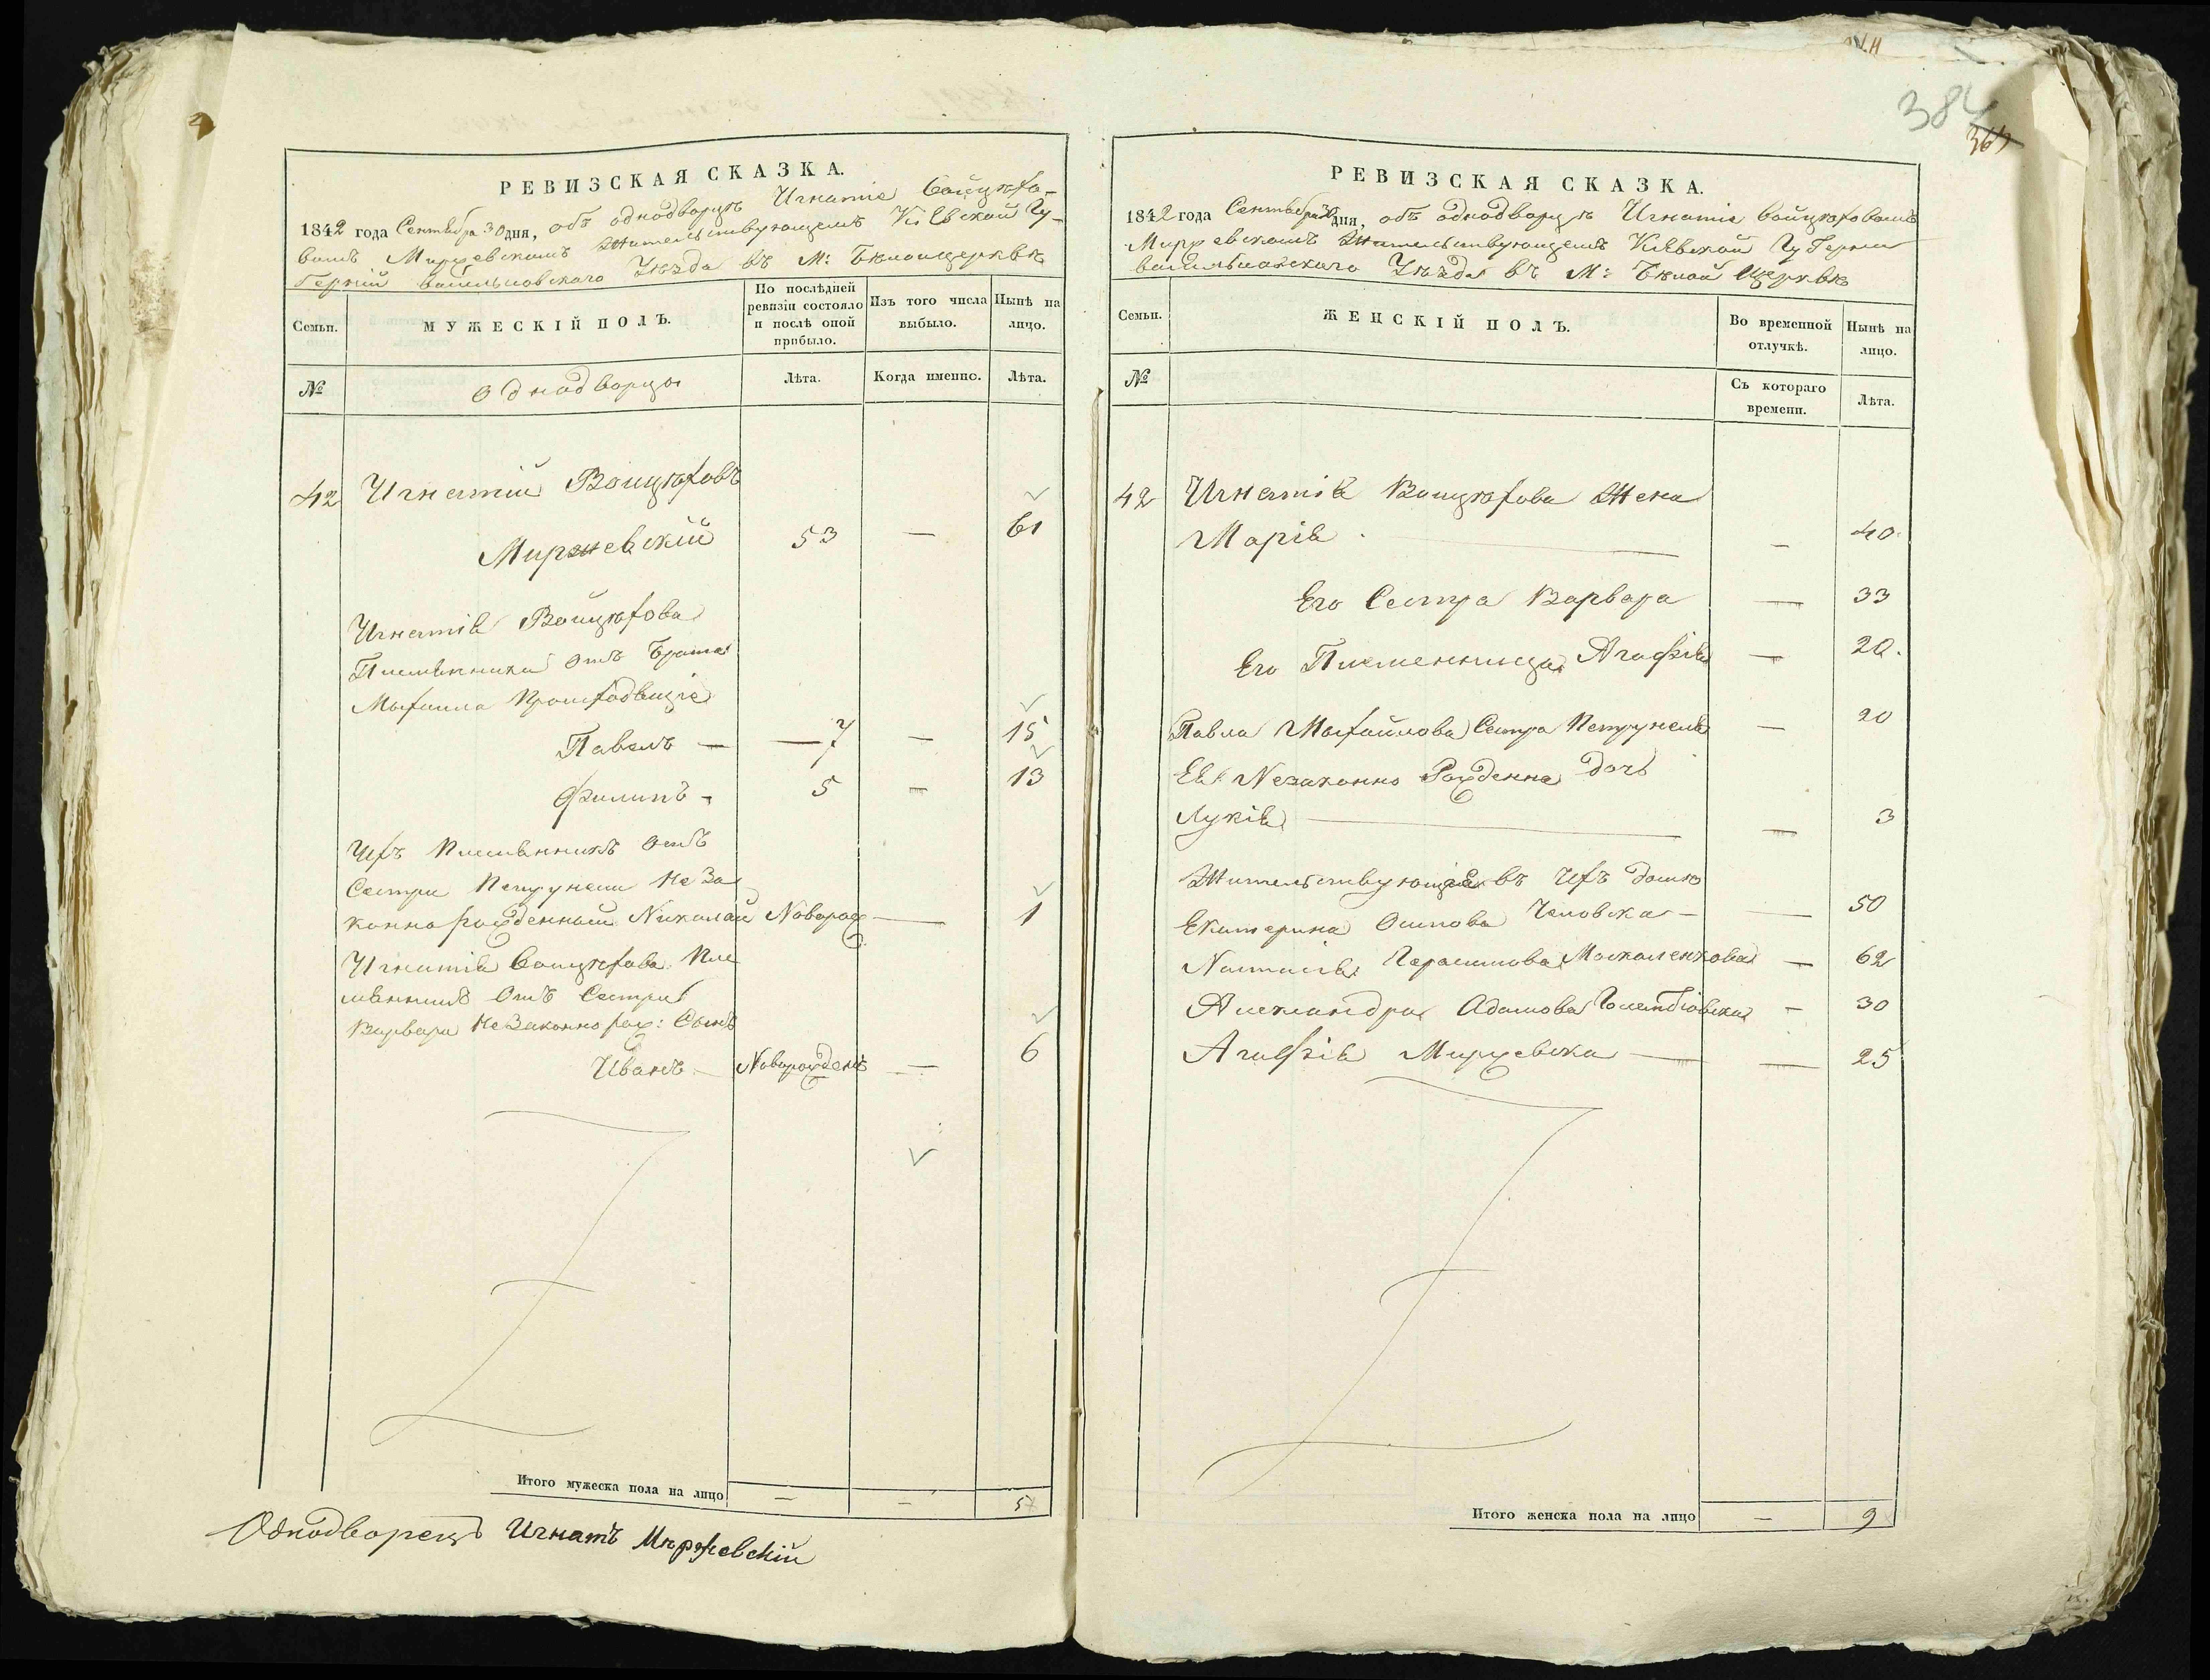 384
369
РЕВИЗСКАЯ СКАЗКА.
1842 года Сентября 30 дня, объ однодворцѣ Игнатіе Войцѣхо-
вомъ Миржевскомъ Жительствующемъ Кіевской Гу-
берніи васильковскаго Уѣзда въ М: Бѣлоицерквѣ
Семьи.
МУЖЕСКІЙ ПОЛЪ.
По послѣдней ревизіи состояло и послѣ оной прибыло.
Изъ того числа выбыло.
Нынѣ на лицо.
№
однодворцы
Лѣта.
Когда именно.
Лѣта.
42 Игнатій Войцѣховъ
Миржевскій 53 — 61
Игнатія Войцѣхова
Племянники отъ брата
Михаила Произходящіе
Павелъ — — 7 — 15
Филипъ - 5 — 13
Ихъ племянникъ отъ
Сестри Петрунели Неза
коннорожденный Николай Новорож — 1
Игнатія Войцѣхова Пле
мянникъ отъ Сестри
Варвари Незаконнорож: Сынъ
Иванъ — Новорожденъ — 6
Итого мужеска пола на лицо — — 5
Однодворецъ Игнатъ Мѣржевскій
РЕВИЗСКАЯ СКАЗКА.
1842 года Сентября 30 дня, объ однодворцѣ Игнатіе Войцѣховомъ
Миржевскомъ Жительствующемъ Кіевской Губерніи
васильковскаго Уѣзда въ М: Бѣлой Церквѣ
Семьи.
ЖЕНСКІЙ ПОЛЪ.
Во временной отлучкѣ.
Нынѣ на лицо.
№
Съ котораго времени.
Лѣта.
42 Игнатія Войцѣхова Жена
Марія — — 40
Его Сестра Варвара — 33
Его Племенница Агафія — 20.
Павла Михайлова Сестра Петрунеля — 20
Ея Незаконно Рожденна дочь
Лукія — — 3
Жительствующіе въ Ихъ домѣ
Екатерина Осипова — — 50
Настасія Герасимова Москаленкова — 62
Александра Адамова Голембіовска — 30
Агафія Миржевска — — 25
Итого женска пола на лицо — 9